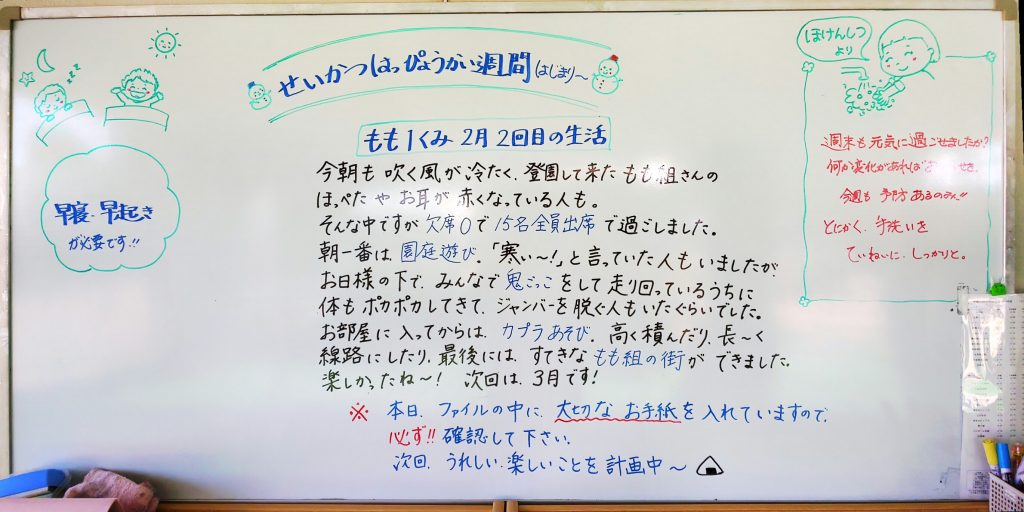 zzz
せいかつはっぴょうかい週間 はじまり〜
もも1くみ 2月 2回目の生活
今朝も 吹く風が冷たく、登園して来た もも組さんの
ほっぺた や お耳が 赤くなっている人も。
そんな中ですが 欠席0で 15名全員出席で過ごしました。
朝一番は 園庭遊び。「寒い〜!」と言っていた人もいましたが、
お日様の下で、みんなで鬼ごっこをして走り回っているうちに
体もポカポカしてきて、ジャンバーを脱ぐ人もいたぐらいでした。
お部屋に入ってからは、カプラあそび。高く積んだり、長〜く
線路にしたり、最後には、すてきな もも組の街が できました。
楽しかったね〜! 次回は、3月です!
※ 本日、ファイルの中に、大切な お手紙を入れていますので、
必ず!! 確認して下さい。
次回、うれしい、楽しいことを計画中〜
早寝・早起き
が必要です!!
ほけんしつ
より
週末も元気に過ごせましたか?
何か変化があれば
今週も 予防あるのみ!!
とにかく、手洗いを
ていねいに、しっかりと。